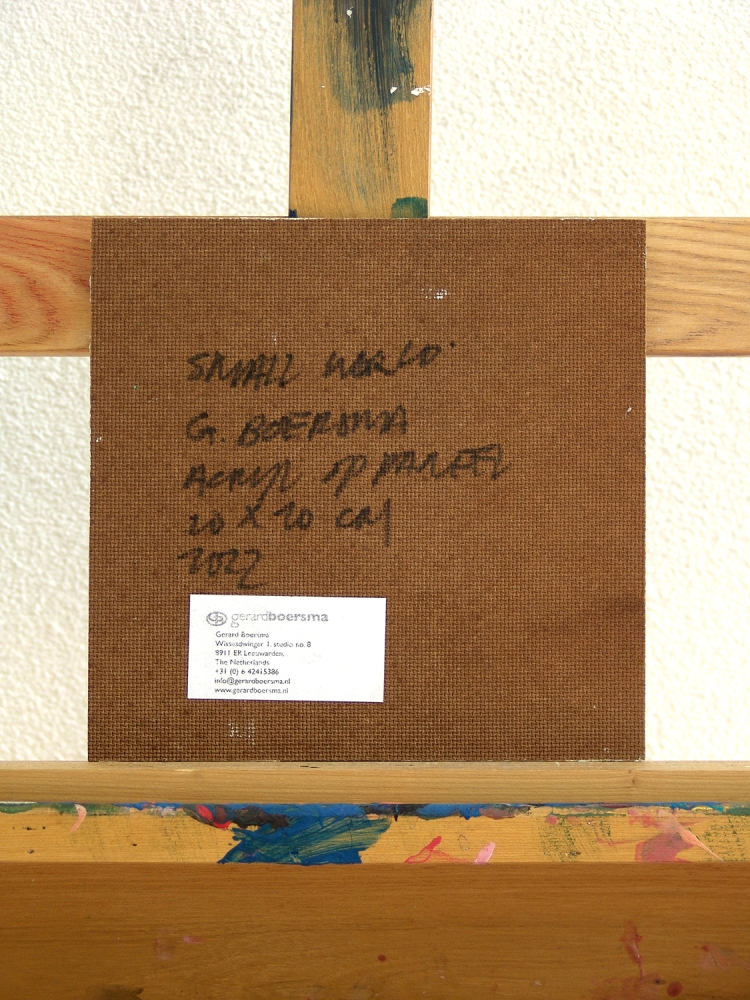 SMALL WORLD.
G. BOERSMA
ACRYL OP PANEEL
20 X 20 CM
2022
gerardboersma
Gerard Boersma
Wissesdwinger 1, studio no. 8
8911 ER Leeuwarden,
The Netherlands
+31 (0) 6 42415386
info@gerardboersma.nl
www.gerardboersma.nl